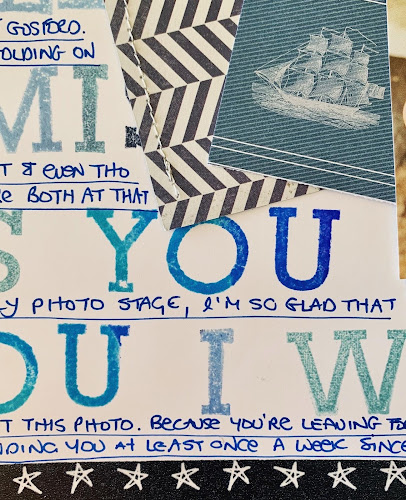 GOSFORD.
OLDING ON
MI
T & EVEN THO
BOTH AT THAT
S YOU
Y PHOTO STAGE, I'M SO GLAD THAT
OU I W
T THIS PHOTO. BECAUSE YOU'RE LEAVING FO
DING YOU AT LEAST ONCE A WEEK SINCE